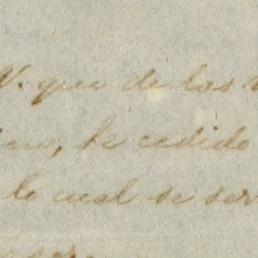 V. que de las
he cedido
lo cual se ser